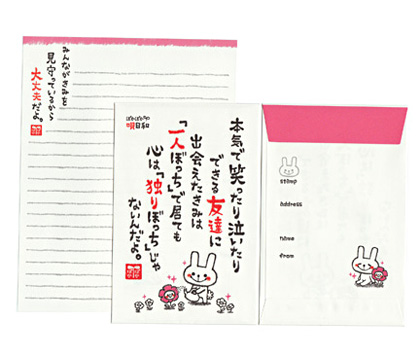 みんながきみを
見守っているから
大丈夫だよ。
ぽかぽかの
曜日和
本気で笑ったり泣いたり
できる友達に
出会えたきみは
「一人ぼっち」で居ても
心は「独りぼっち」じゃ
ないんだよ。
stamp
address
name
from